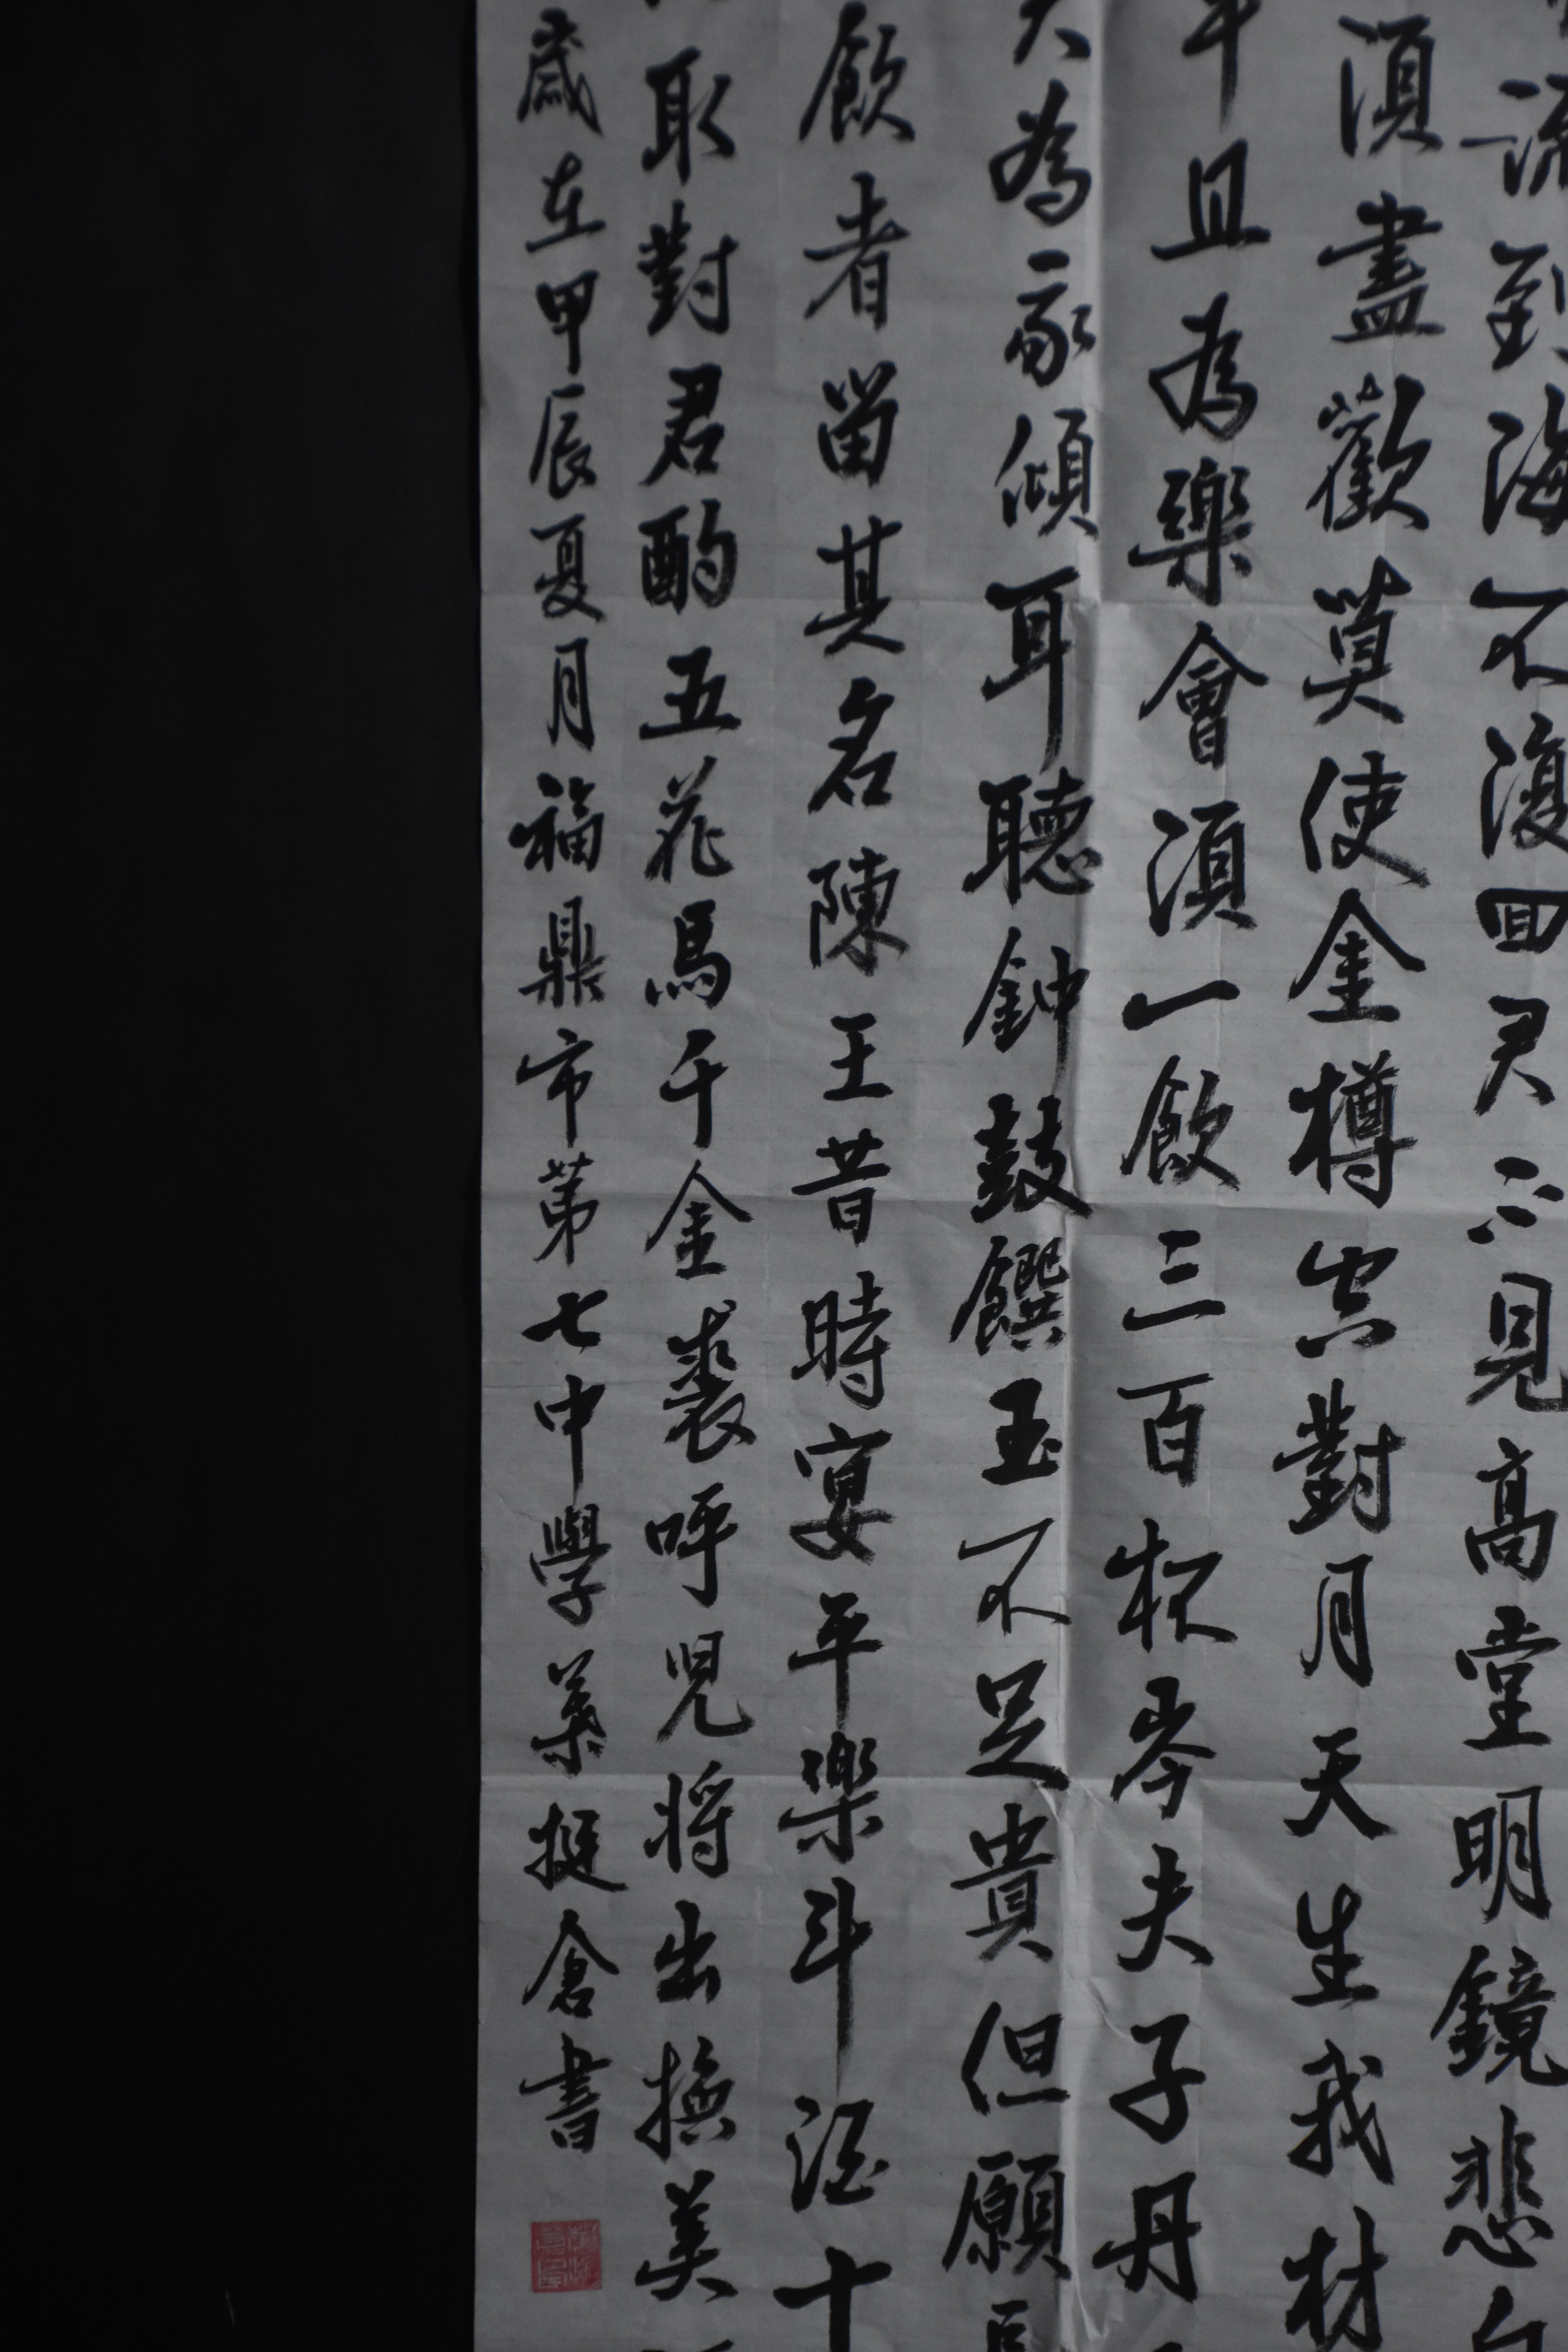 流到海不復回君不見高堂明鏡悲白
須盡歡莫使金樽空對月天生我材
羊且為樂會須一飲三百杯岑夫子丹
為我傾耳聽鐘鼓饌玉不足貴但願長
飲者留其名陳王昔時宴平樂斗酒十
取對君酌五花馬千金裘呼兒將出換美
歲在甲辰夏月福鼎市第七中學葉挺倉書